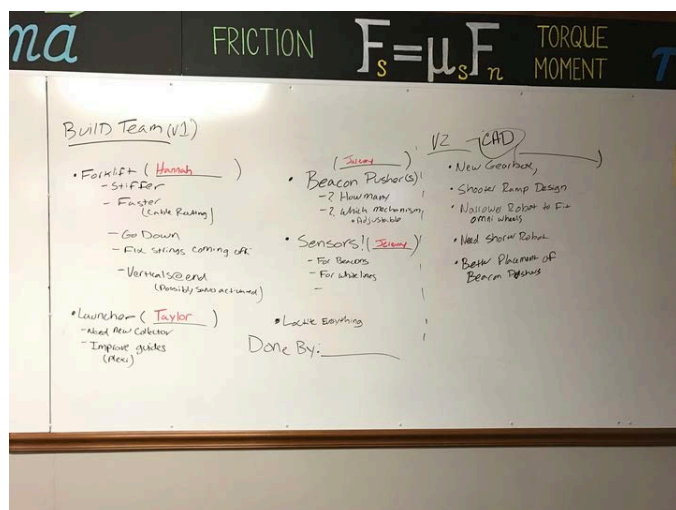 ma
FRICTION
Fs=μsFn
TORQUE
MOMENT
τ
BuilD Team (V1)
• Forklift (Hannah)
- Stiffer
- Faster
(Cable Routing)
- Go Down
- Fix strings coming off
- Verticals@end
(Possibly servo activated)
• Launcher (Taylor)
- Need New Collector
- Improve guides
(Plexi)
(Jeremy)
• Beacon Pusher(s)
- ? How many
- ? Which mechanism
• Adjustable
• Sensors! (Jeremy)
- For Beacons
- For white lines
-
• Loctite Everything
Done By:
V2 CAD
• New Gearbox,
• Shooter Ramp Design
• Narrower Robot to Fit
omni wheels
• Need Shorter Robot
• Better Placement of
Beacon Pushers